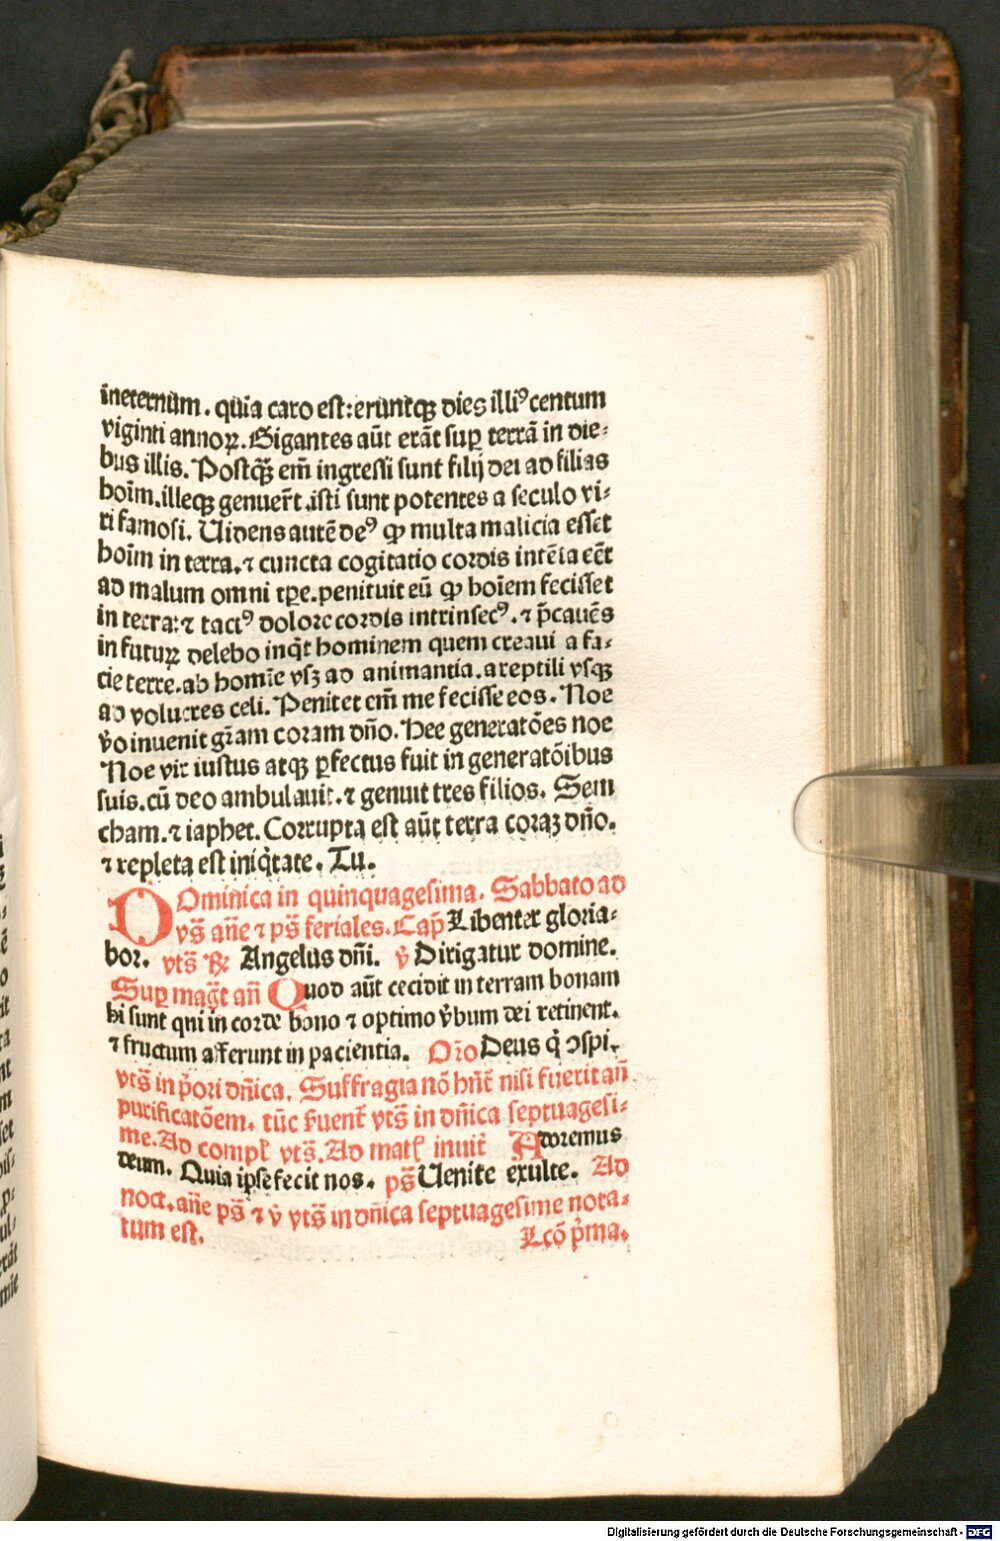 ineternum. quia caro est: eruntqꝫ dies illiꝰ centum
viginti annoꝝ. Gigantes aūt erāt suꝑ terrā in die⸗
bus illis. Postqꝫ̄ em̄ ingressi sunt filij dei ad filias
hoīm. illeqꝫ genuer̄t. isti sunt potentes a seculo vi⸗
ri famosi. Uidens autē deꝰ ꝙ multa malicia esset
hoīm in terra. ⁊ cuncta cogitatio cordis intēta eēt
ad malum omni tꝑe. penituit eū ꝙ hoīem fecisset
in terra: ⁊ tactꝰ dolore cordis intrinsecꝰ. ⁊ p̄cauēs
in futuꝝ delebo inq̇t hominem quem creaui a fa⸗
cie terre. ab homīe vsqꝫ ad animantia. a reptili vsqꝫ
ad volucres celi. Penitet em̄ me fecisse eos. Noe
v̊o inuenit gr̄am coram dn̄o. Hee generatōes noe
Noe vir iustus atqꝫ ꝑfectus fuit in generatōibus
suis. cū deo ambulauit. ⁊ genuit tres filios. Sem
cham. ⁊ iaphet. Corrupta est aūt terra coraꝫ dn̄o.
⁊ repleta est iniq̇tate. Tu.
DOminica in quinquagesima. Sabbato ad
vs̄ añe ⁊ ps̄ feriales. Cap̄ Libenter gloria⸗
bor. vts̄ ℟ Angelus dn̄i. v̊ Dirigatur domine.
Suꝑ mag̅t an̄ Quod aūt cecidit in terram bonam
hi sunt qui in corde bono ⁊ optimo v̊bum dei retinent.
⁊ fructum afferunt in paciencia. Or̄o Deus q̇ ↄspi.
vts̄ in p̊ori dn̄ica. Suffragia nō hn̄t nisi fuerit an̄
purificatōem. tūc fuent̄ vts̄ in dn̄ica septuagesi⸗
me. Ad compl̄ vts̄. Ad matl̄ inuit̄ Adoremus
deum. Quia ipse fecit nos. ps̄ Uenite exulte. Ad
noct. añe ps̄ ⁊ v̊ vts̄ in dn̄ica septuagesime nota⸗
tum est. Lcō p̊ma.
Digitalisierung gefördert durch die Deutsche Forschungsgemeinschaft - DFG